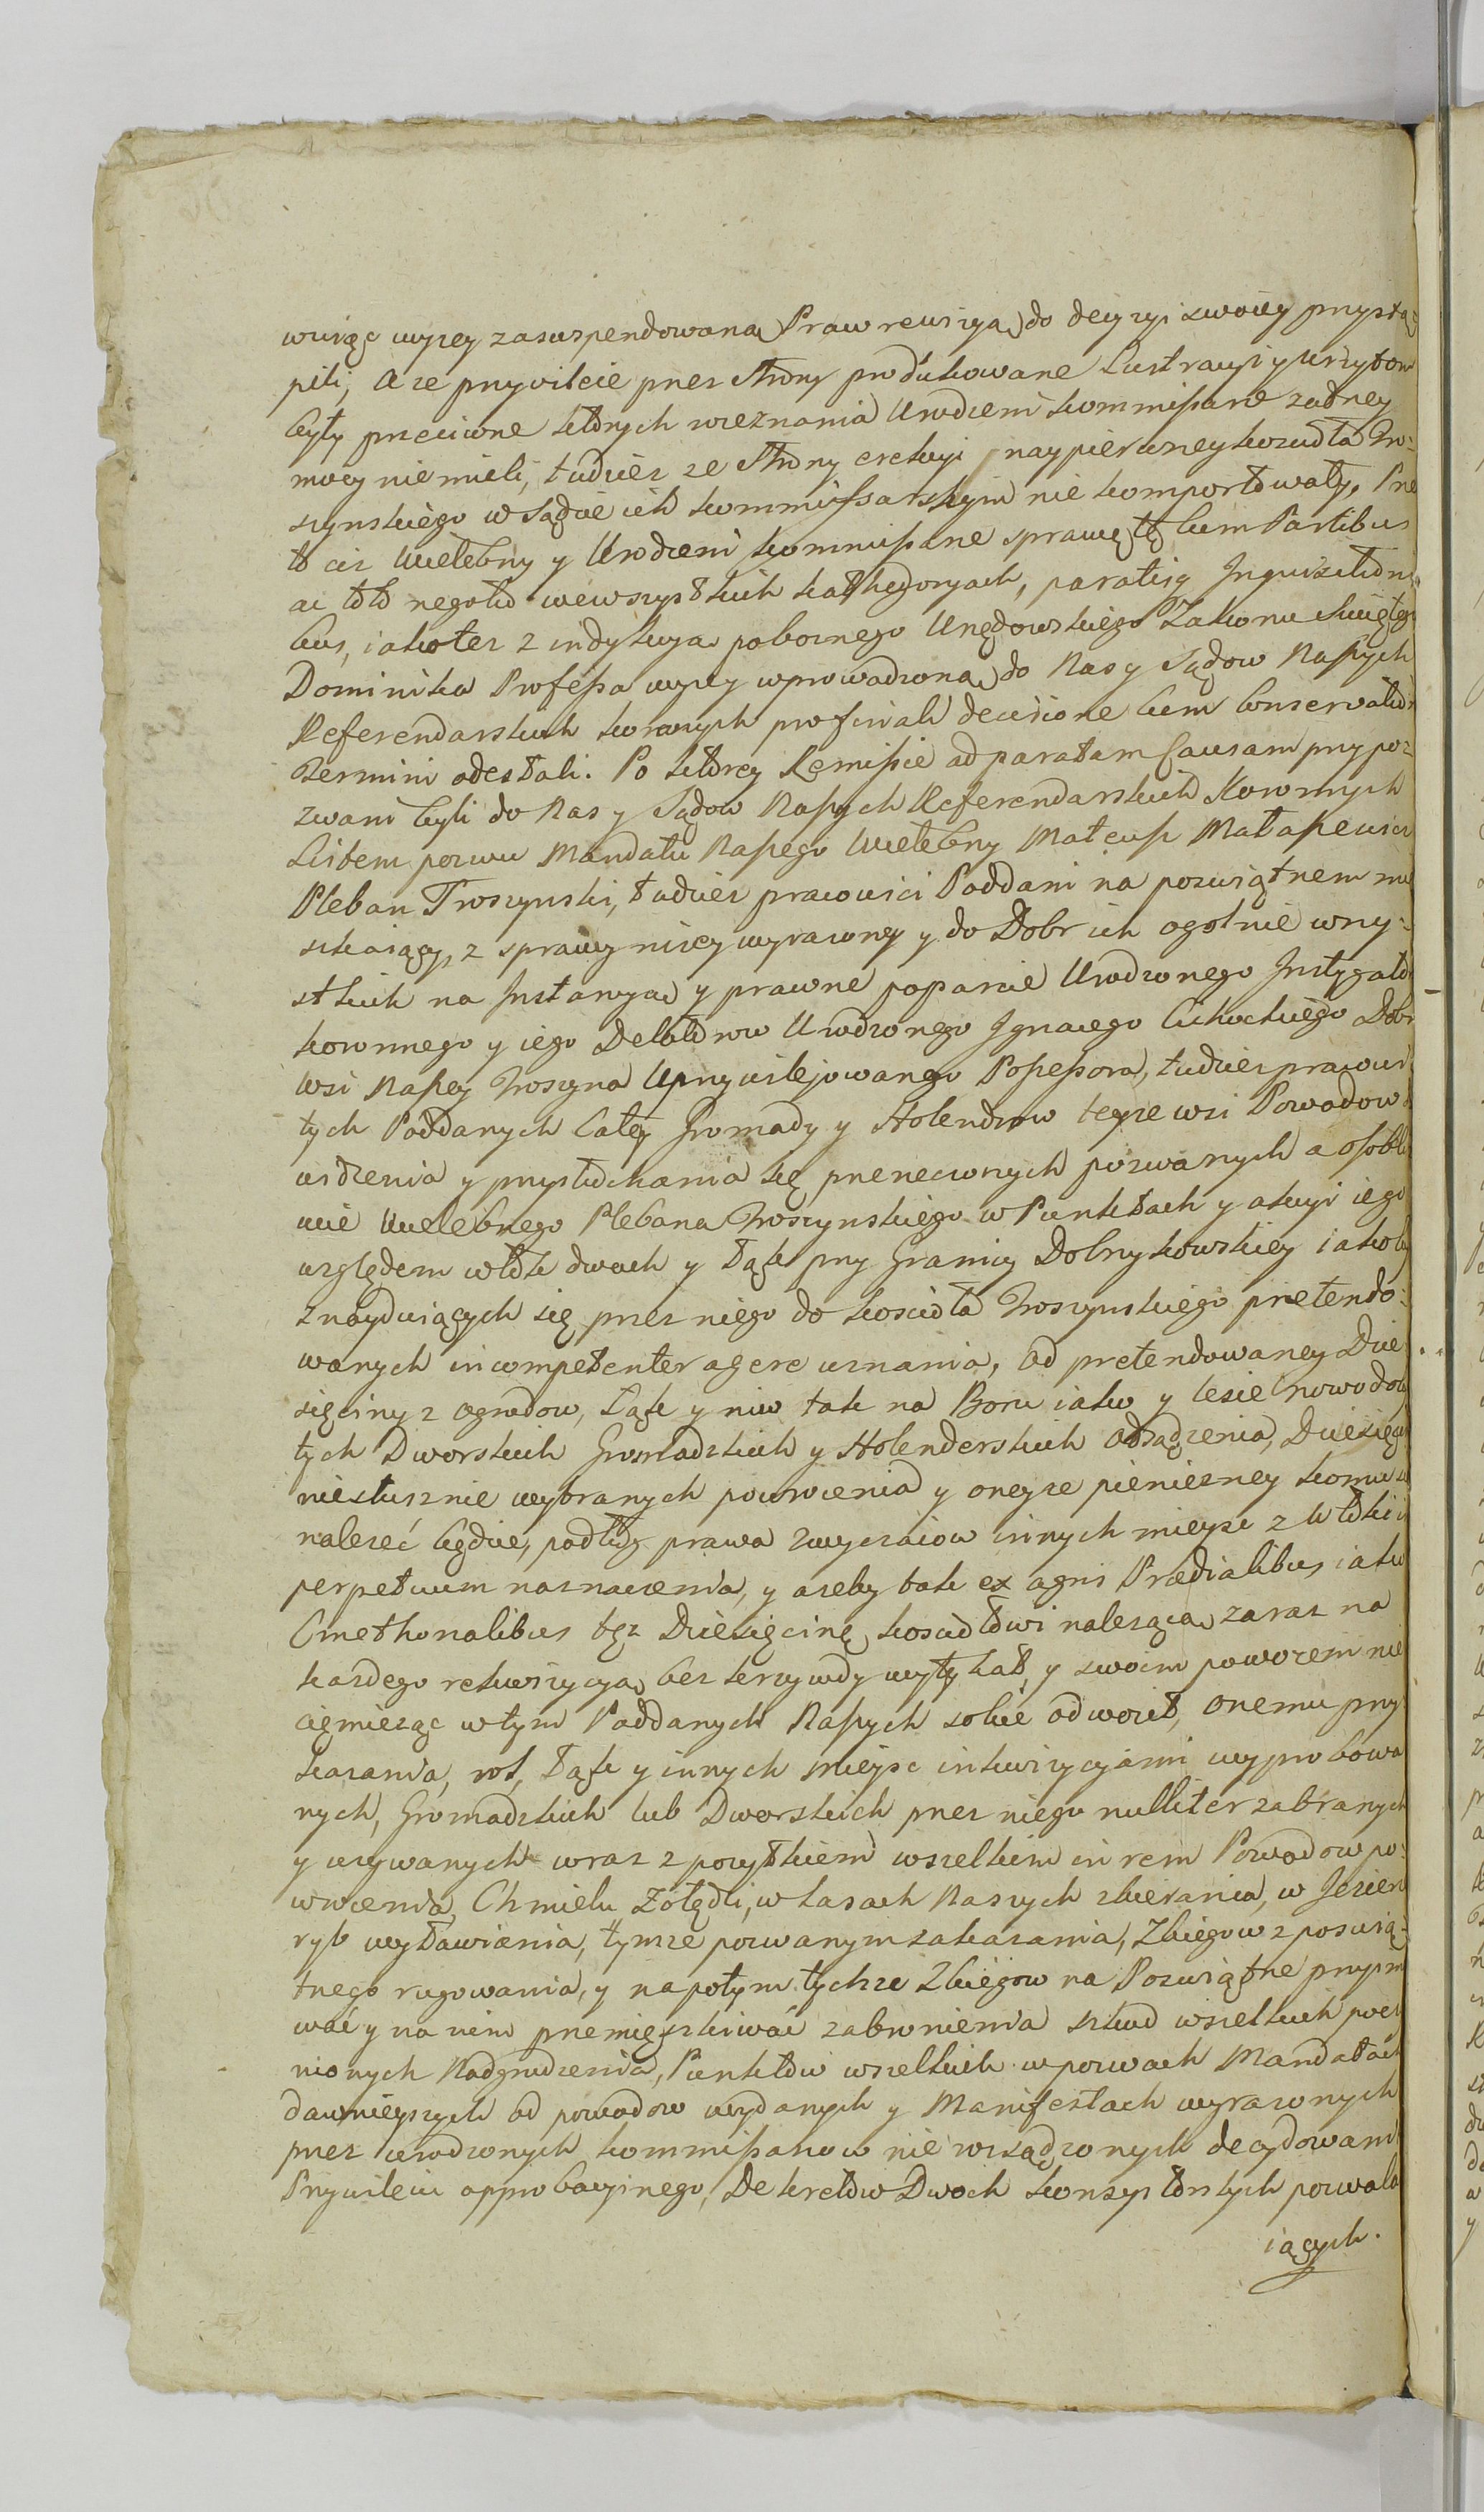 wuiąc wyzey zasuspendowaną Praw rewizyą do decyzyi swoiey przystą-
pili, a ze przywileie przez Strony produkowane Lustracyi y
były przeciwne których zeznania Urodzeni kommissarze zadney
mocy nie mieli, tudziez ze Strony erekcyi naypierwszey koscioła Tro:
szynskiego w Sądzie ich kommissarskim nie komportowały, Prze
to ciz Wielebny y Urodzeni kommissarze sprawę tę cum Partibus
ac toto negotio we wszystkich kathegoryach, paratis Inquisitioni
bus, iako tez z indykcyą pobocznego Urzędowskiego Zakonu Swiętego
Dominika Professa wyzey wprowadzoną do Nas y Sądow Naszych
Referendarskich koronnych pro finali decisione cum conservatio
Termini odesłali. Po ktorey Remissie ad paratam Causam przypoz
zwani byli do Nas y Sądow Naszych Referendarskich Koronnych
Listem pozwu Mandatu Naszego Wielebny Mateusz Matasewicz
Pleban Troszynski, tudziez pracowici Poddani na poswiątnem mie
szkaiący, z sprawy nizey wyrazoney y do Dobr ich ogolnie wszy:
stkich na Instancyą y prawne poparcie Urodzonego Instygato
koronnego y iego Delatorow Urodzonego Ignacego Cichockiego Dobr
Wsi Naszey Troszyna Uprzywilejowanego Possessora, tudziez pracowi
tych Poddanych Całey Gromady y Holendrow teyze wsi Powodow
widzenia y przysłuchania się przerzeczonych pozwanych a osobli
wie Wielebnego Plebana Troszynskiego w Punktach y akcyi iego
względem włok dwoch y Łąk przy Granicy Dobrzykowskiey iakoby
znayduiących się przez niego do koscioła Troszynskiego pretendo:
wanych incompetenter agere uznania, od pretendowaney Dzie
sięciny z ogrodow, Łąk y niw tak na Boru iako y lesie nowodoby
tych Dworskich Gromadzkich y Holenderskich odsądzenia, Dziesięcin
niesłusznie wybranych powrocenia y oneyze pienięzney komu
nalezeć będzie, podług prawa zwyczaiow innych mieysc z włoki in
perpetuum naznaczenia, y azeby tak ex agris Prædialibus iako
Cmethonalibus tęz Dziesięcinę kosciołowi nalezącą zaraz na
kazdego rekwizycyą bez krzywdy wytykał, y swoim powozem nie
ciemięząc w tym Poddanych Naszych sobie odwoził, onemu przy
kazania, rol, Łąk y innych mieysc inkwizycyami wyprobowa
nych, Gromadzkich lub Dworskich przez niego nulliter zabranych
y uzywanych wraz z pozytkiem wszelkim in rem Powodow po:
wrocenia, Chmielu Zołędzi, w Lasach Naszych zbierania, w Jezierz
ryb wyławiania, tymze pozwanym zakazania, Zbiegow z poswią:
tnego rugowania, y napotym tychze Zbiegow na Poswiątne przyim
wać y na nim przemięszkiwać zabronienia szkod wszelkich poczy
nionych Nadgrodzenia, Punktow wszelkich w pozwach Mandatach
dawnieyszych od powodow wydanych y Manifestach wyrazonych
przez urodzonych kommissarzow nie rozsądzonych decydowania
Przywileiu approbacyinego, Dekretow Dwoch konsystorskych pozwala
iących.